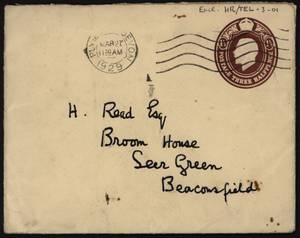 Encl. HR/TEL-3-01
11 30 AM
1929
THREE HALFPENCE
H. Read Esq
Broom House
Seer Green
Beaconsfield